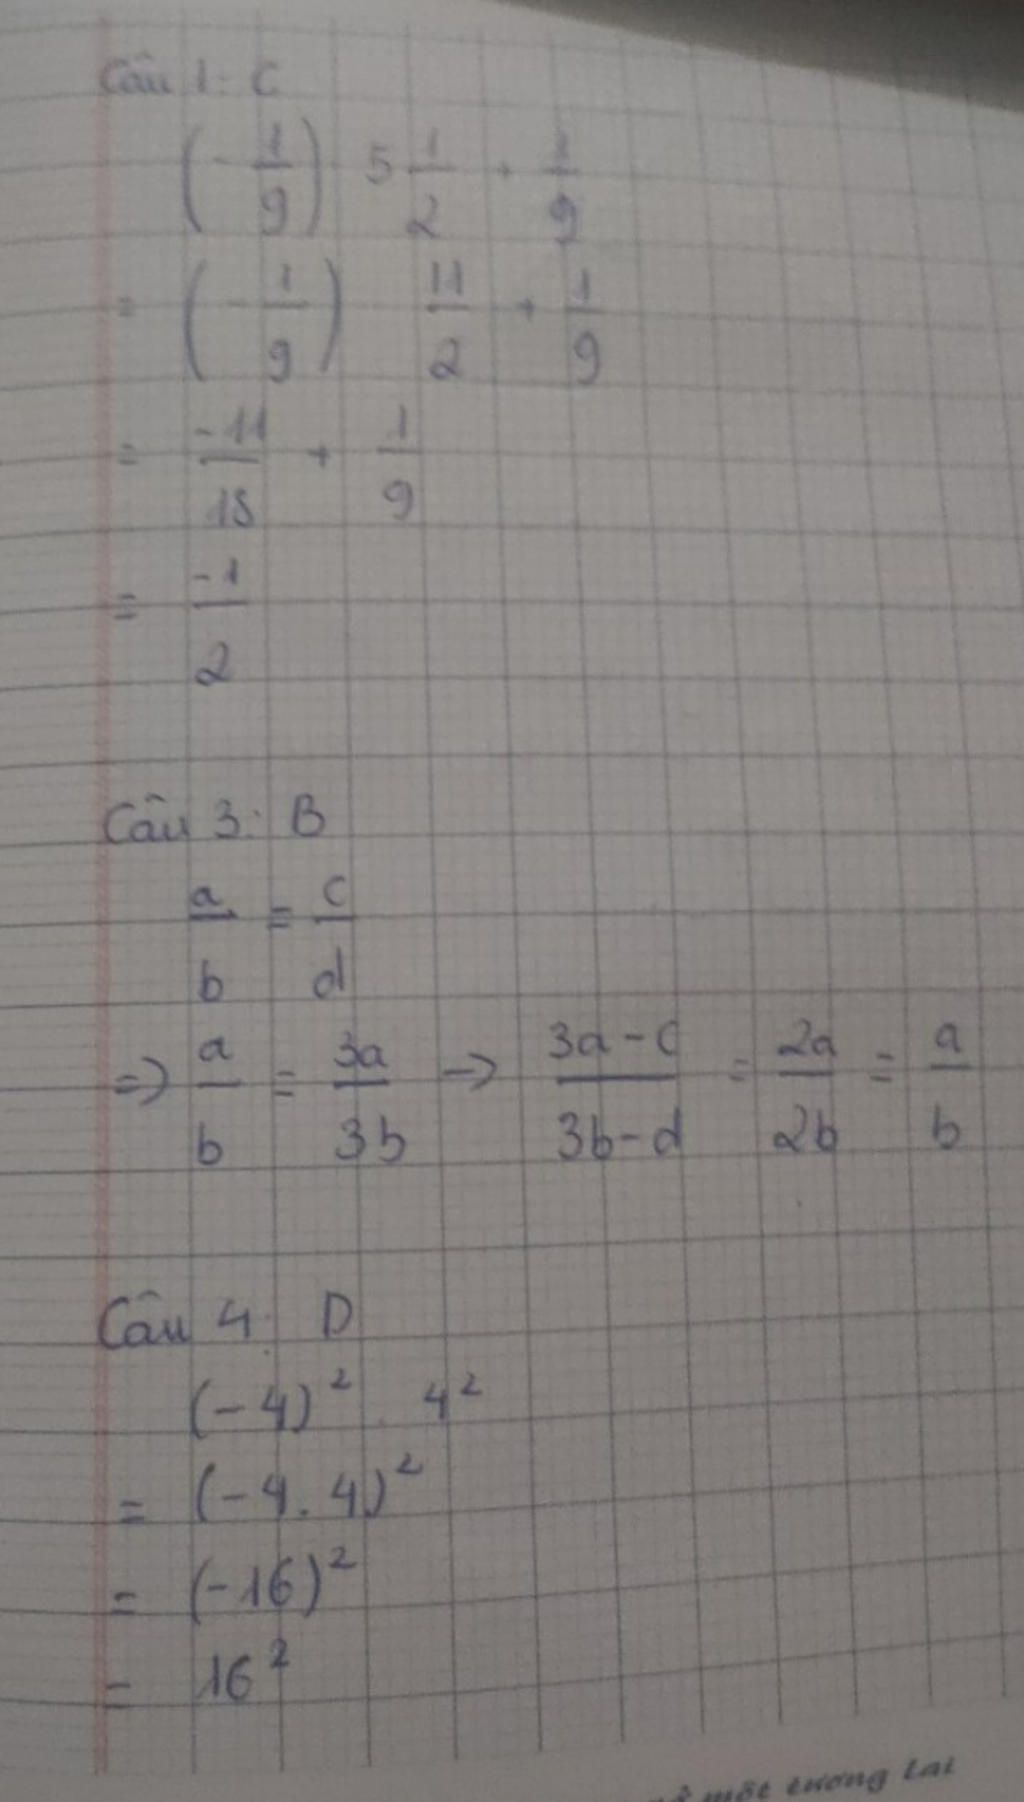 Câu 1: C
(-1/9) 5 1/2 + 1/9
= (-1/9) 11/2 + 1/9
= -11/18 + 1/9
= -1/2
Câu 3: B
a/b = c/d
=> a/b = 3a/3b -> 3a-c/3b-d = 2a/2b = a/b
Câu 4: D
(-4)² . 4²
= (-4.4)²
= (-16)²
= 16²
một tương lai